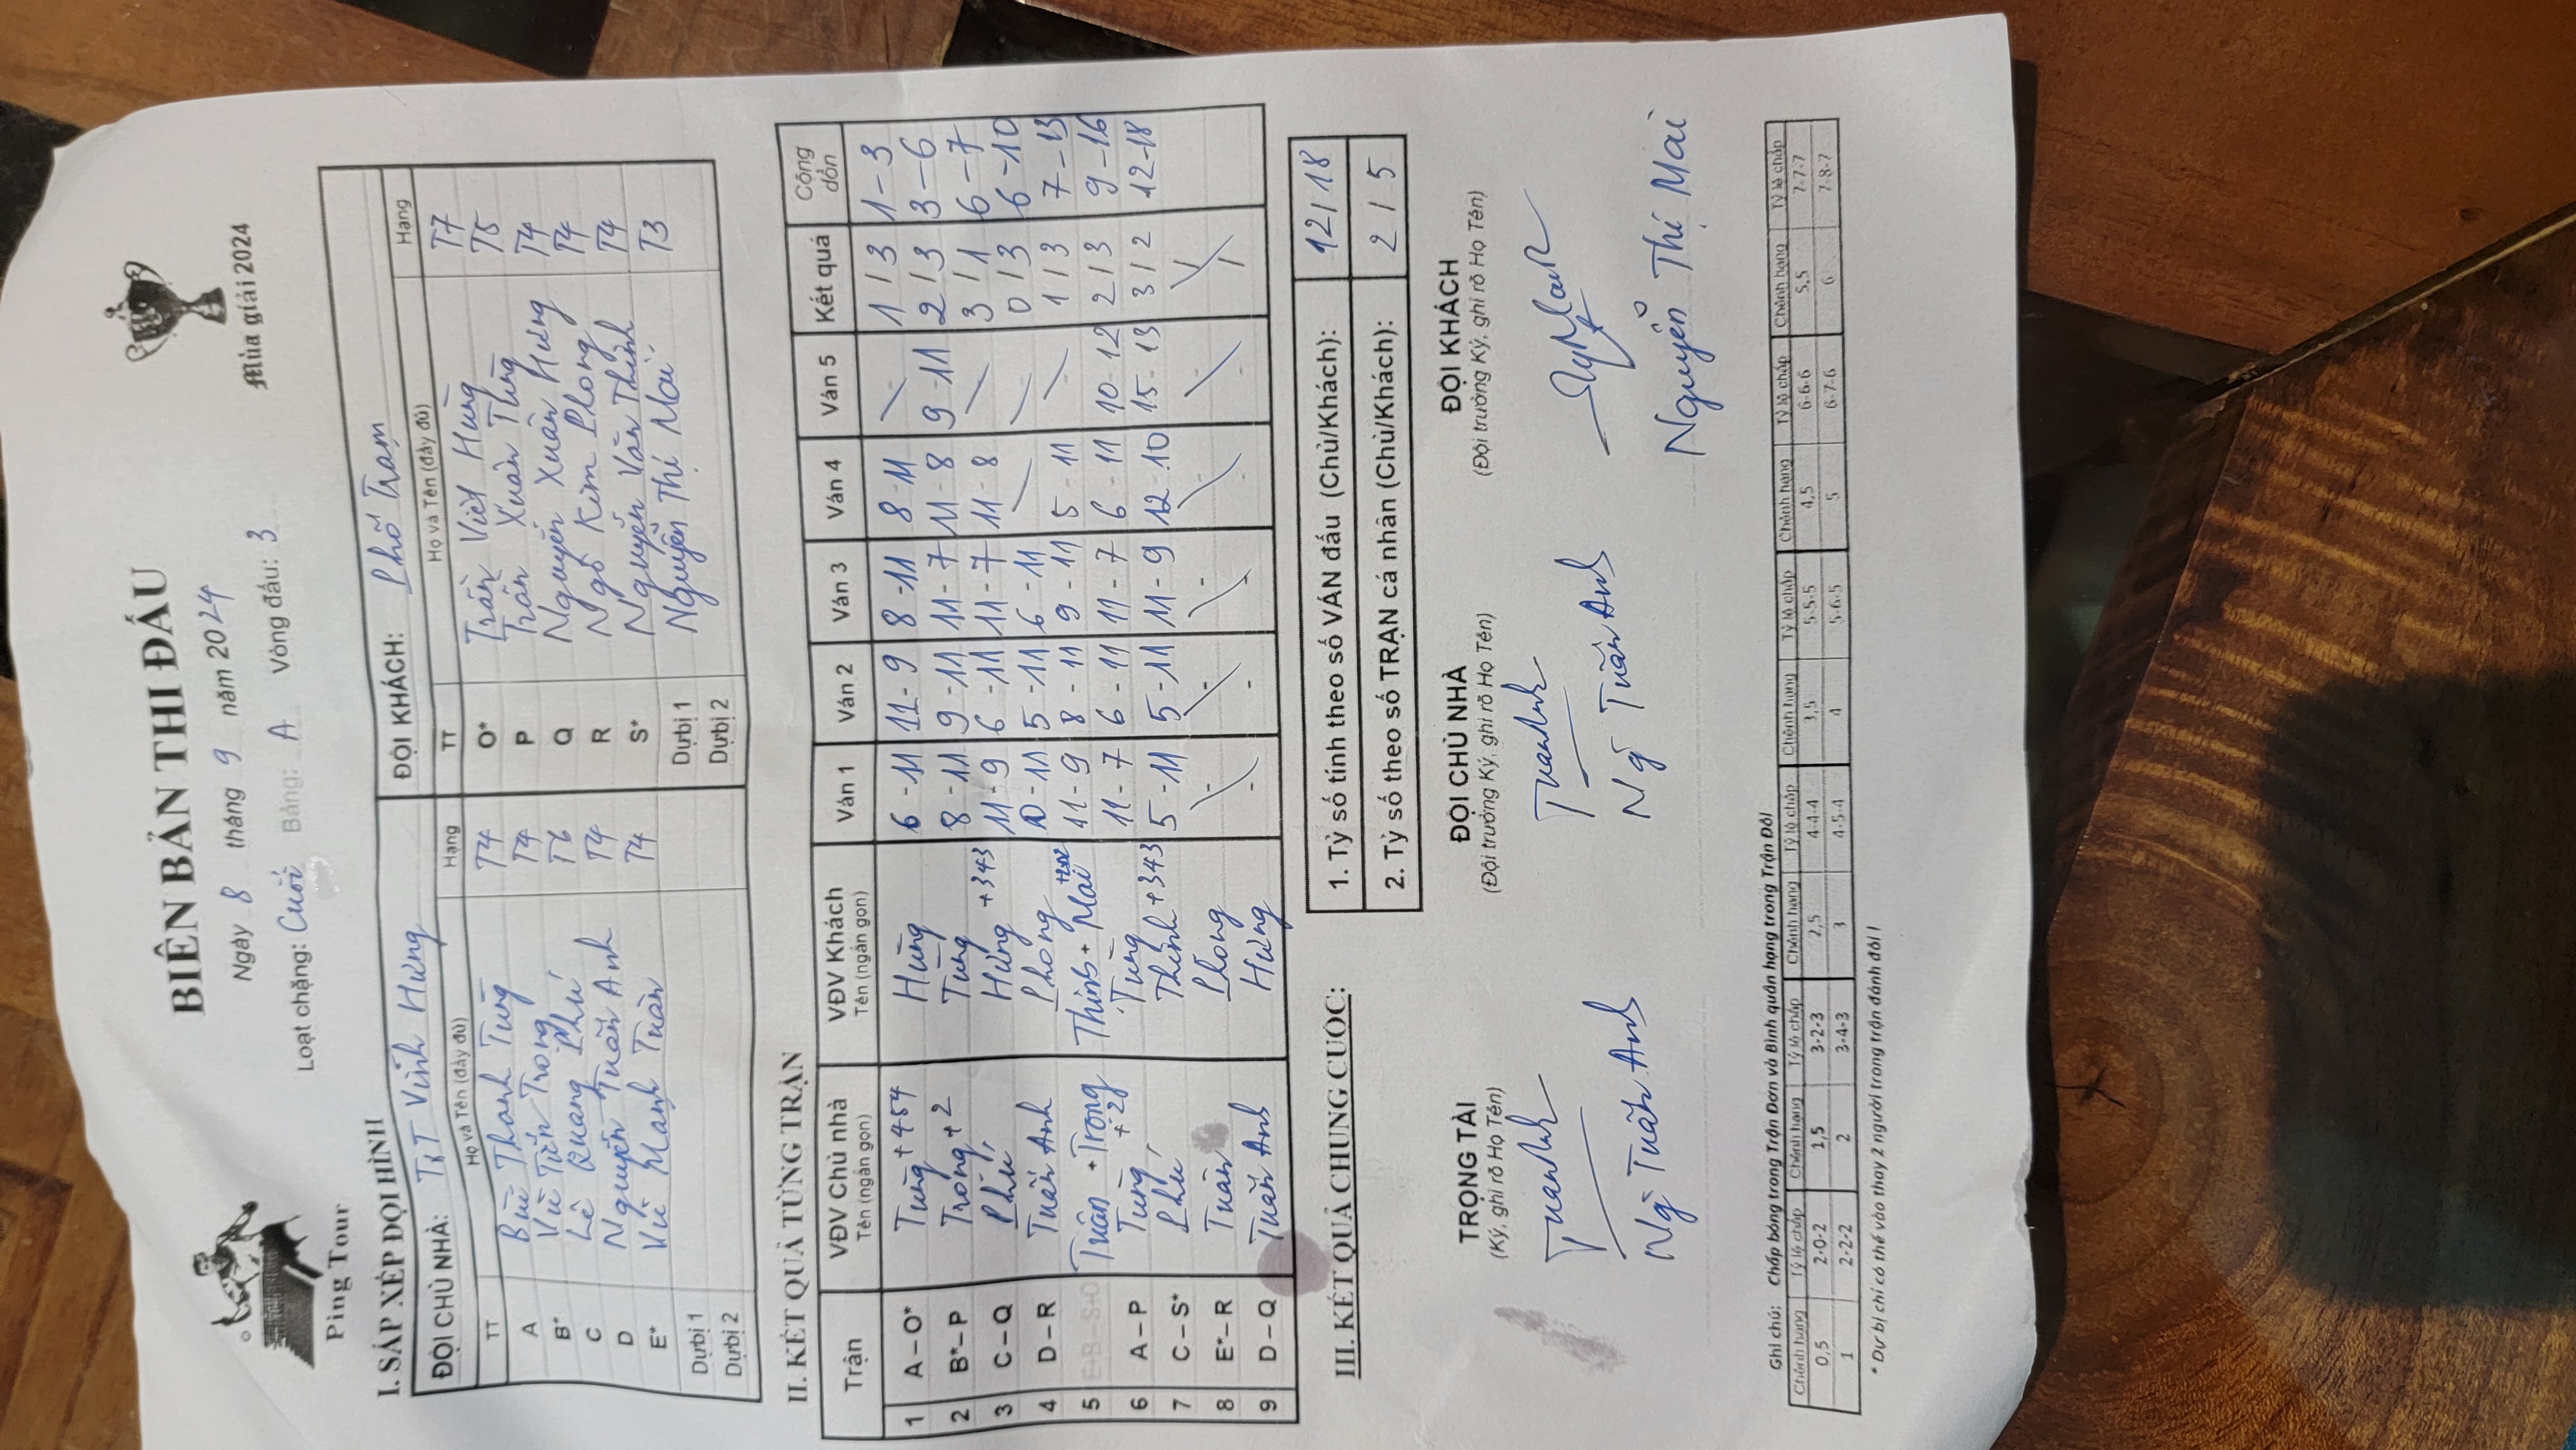 BIÊN BẢN THI ĐẤU
Ping Tour
Ngày 8 tháng 9 năm 2024
Loạt chặng: Cuối Bảng: A Vòng đấu: 3
Mùa giải 2024
I. SẮP XẾP ĐỘI HÌNH
ĐỘI CHỦ NHÀ: TJT Vĩnh Hưng ĐỘI KHÁCH: Phố Trạm
TT Họ và Tên (đầy đủ) Hạng TT Họ và Tên (đầy đủ) Hạng
A Bùi Thanh Tùng T4 O* Trần Việt Hùng T7
B* Vũ Tiến Trọng T4 P Trần Xuân Tùng T5
C Lê Quang Phú T6 Q Nguyễn Xuân Hưng T4
D Nguyễn Tuấn Anh T4 R Ngô Kim Phong T4
E* Vũ Mạnh Tuân T4 S* Nguyễn Văn Thịnh T4
Dự bị 1 Nguyễn Thị Mai T3 Dự bị 1
Dự bị 2 Dự bị 2
II. KẾT QUẢ TỪNG TRẬN
Trận VĐV Chủ nhà VĐV Khách Ván 1 Ván 2 Ván 3 Ván 4 Ván 5 Kết quả Cộng dồn
Tên (ngắn gọn) Tên (ngắn gọn)
1 A – O* Tùng +454 Hùng 6 - 11 11 - 9 8 - 11 8 - 11 1 / 3 1 - 3
2 B* – P Trọng +2 Tùng 8 - 11 9 - 11 11 - 7 11 - 8 9 - 11 2 / 3 3 - 6
3 C – Q Phú Hưng +343 11 - 9 6 - 11 11 - 7 11 - 8 3 / 1 6 - 7
4 D – R Tuấn Anh Phong - 11 5 - 11 6 - 11 0 / 3 6 - 10
5 E+B S+O Tuân + Trọng Thịnh + Mai 11 - 9 8 - 11 9 - 11 5 - 11 1 / 3 7 - 13
6 A – P Tùng Tùng 11 - 7 6 - 11 11 - 7 6 - 11 10 - 12 2 / 3 9 - 16
7 C – S* Phú Thịnh +343 5 - 11 5 - 11 11 - 9 12 - 10 15 - 13 3 / 2 12 - 18
8 E* – R Tuân Phong
9 D – Q Tuấn Anh Hưng
III. KẾT QUẢ CHUNG CUỘC:
1. Tỷ số tính theo số VÁN đấu (Chủ/Khách): 12 / 18
2. Tỷ số theo số TRẬN cá nhân (Chủ/Khách): 2 / 5
TRỌNG TÀI ĐỘI CHỦ NHÀ ĐỘI KHÁCH
(Ký, ghi rõ Họ Tên) (Đội trưởng Ký, ghi rõ Họ Tên) (Đội trưởng Ký, ghi rõ Họ Tên)
Tuanh Tuanh
Ng Tuấn Anh Ng Tuấn Anh Nguyễn Thị Mai
Ghi chú: Chấp bóng trong Trận Đơn và Bình quân hạng trong Trận Đôi
Chênh hạng Tỷ lệ chấp Chênh hạng Tỷ lệ chấp Chênh hạng Tỷ lệ chấp Chênh hạng Tỷ lệ chấp Chênh hạng Tỷ lệ chấp Chênh hạng Tỷ lệ chấp
0,5 2-0-2 1,5 3-2-3 2,5 4-4-4 3,5 5-5-5 4,5 6-6-6 5,5 7-7-7
1 2-2-2 2 3-4-3 3 4-5-4 4 5-6-5 5 6-7-6 6 7-8-7
* Dự bị chỉ có thể vào thay 2 người trong trận đánh đôi !